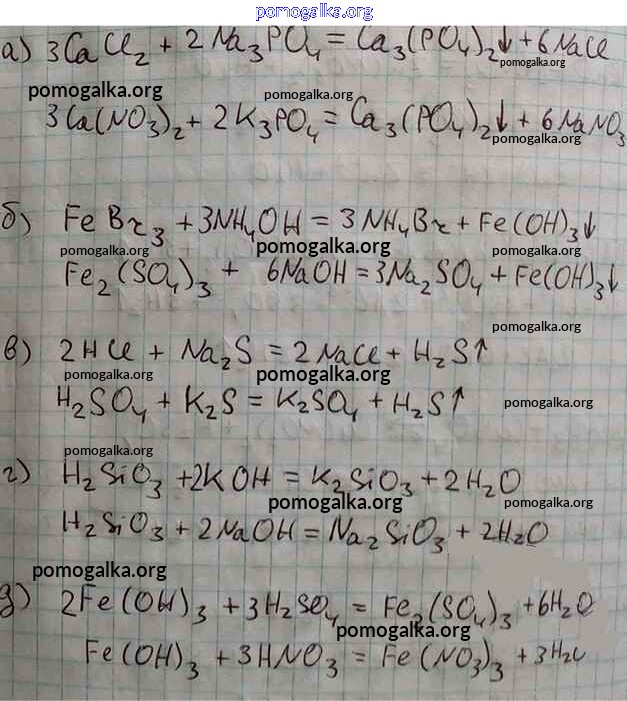 pomogalka.org
а) 3CaCl₂ + 2Na₃PO₄ = Ca₃(PO₄)₂↓ + 6NaCl
pomogalka.org
pomogalka.org pomogalka.org
3Ca(NO₃)₂ + 2K₃PO₄ = Ca₃(PO₄)₂↓ + 6NaNO₃
pomogalka.org
б) FeBr₃ + 3NH₄OH = 3NH₄Br + Fe(OH)₃↓
pomogalka.org pomogalka.org pomogalka.org
Fe₂(SO₄)₃ + 6NaOH = 3Na₂SO₄ + Fe(OH)₃↓
pomogalka.org
в) 2HCl + Na₂S = 2NaCl + H₂S↑
pomogalka.org pomogalka.org
H₂SO₄ + K₂S = K₂SO₄ + H₂S↑
pomogalka.org
pomogalka.org
г) H₂SiO₃ + 2KOH = K₂SiO₃ + 2H₂O
pomogalka.org pomogalka.org
H₂SiO₃ + 2NaOH = Na₂SiO₃ + 2H₂O
pomogalka.org
pomogalka.org
д) 2Fe(OH)₃ + 3H₂SO₄ = Fe₂(SO₄)₃ + 6H₂O
pomogalka.org
Fe(OH)₃ + 3HNO₃ = Fe(NO₃)₃ + 3H₂O